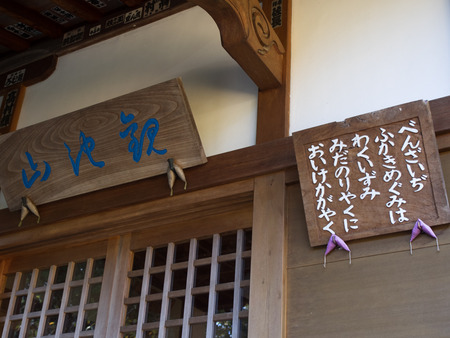 観池山
べんざいぢ
ふかきめぐみは
わくいずみ
みだのりやくに
おいけかがやく